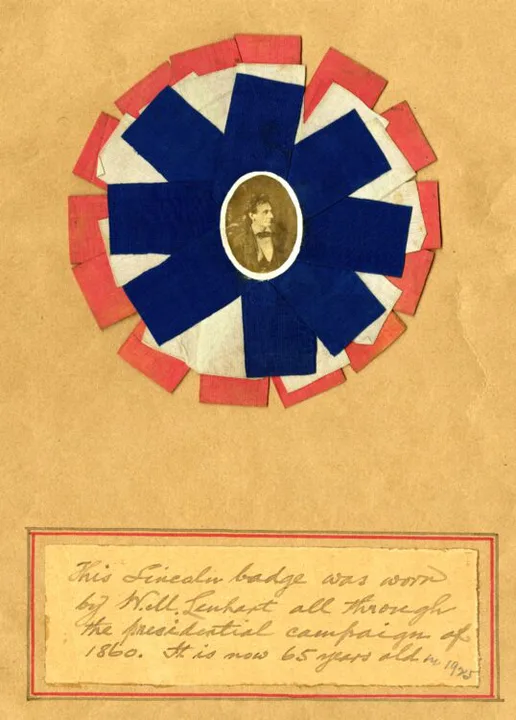 This Lincoln badge was worn
by W.M. Lenhart all through
the presidential campaign of
1860. It is now 65 years old in 1925